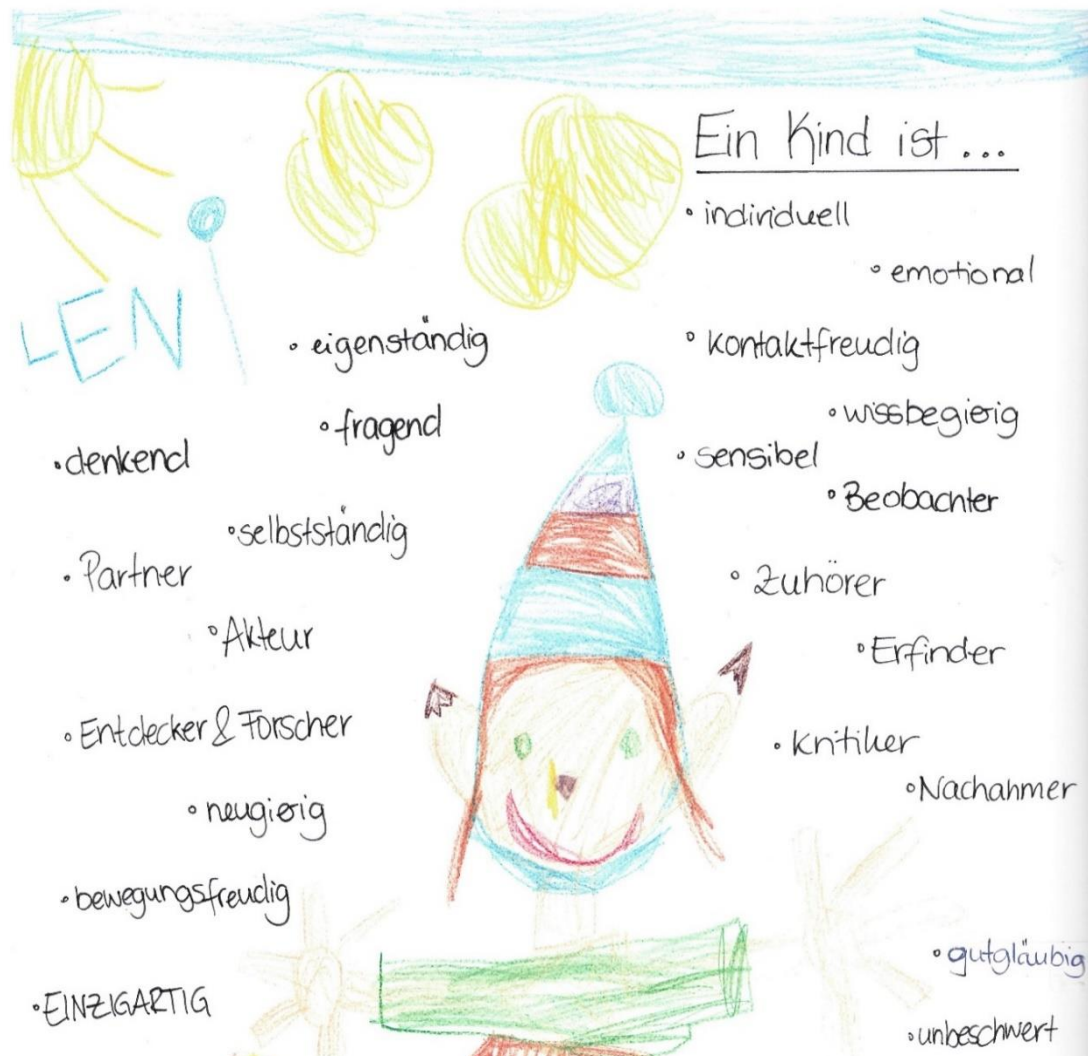 Ein Kind ist...
• individuell
• emotional
• kontaktfreudig
• wissbegierig
• sensibel
• Beobachter
• Zuhörer
• Erfinder
• Kritiker
• Nachahmer
• gutgläubig
• unbeschwert
LENI
• eigenständig
• fragend
• denkend
• selbstständig
• Partner
• Akteur
• Entdecker & Forscher
• neugierig
• bewegungsfreudig
• EINZIGARTIG